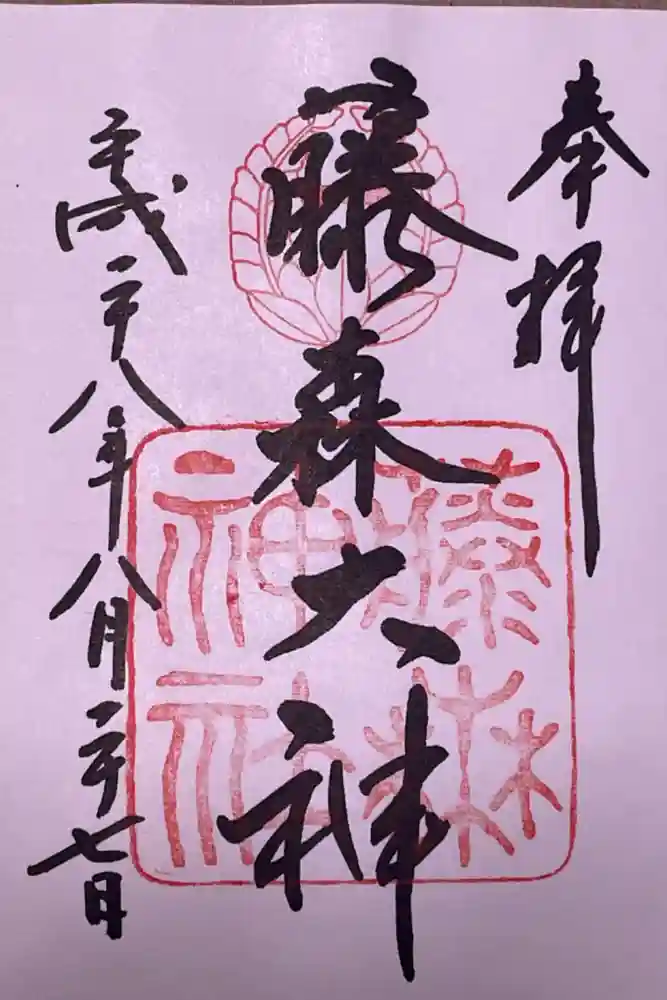 奉拝
藤森大神
平成二十八年八月二十七日
藤森
神社